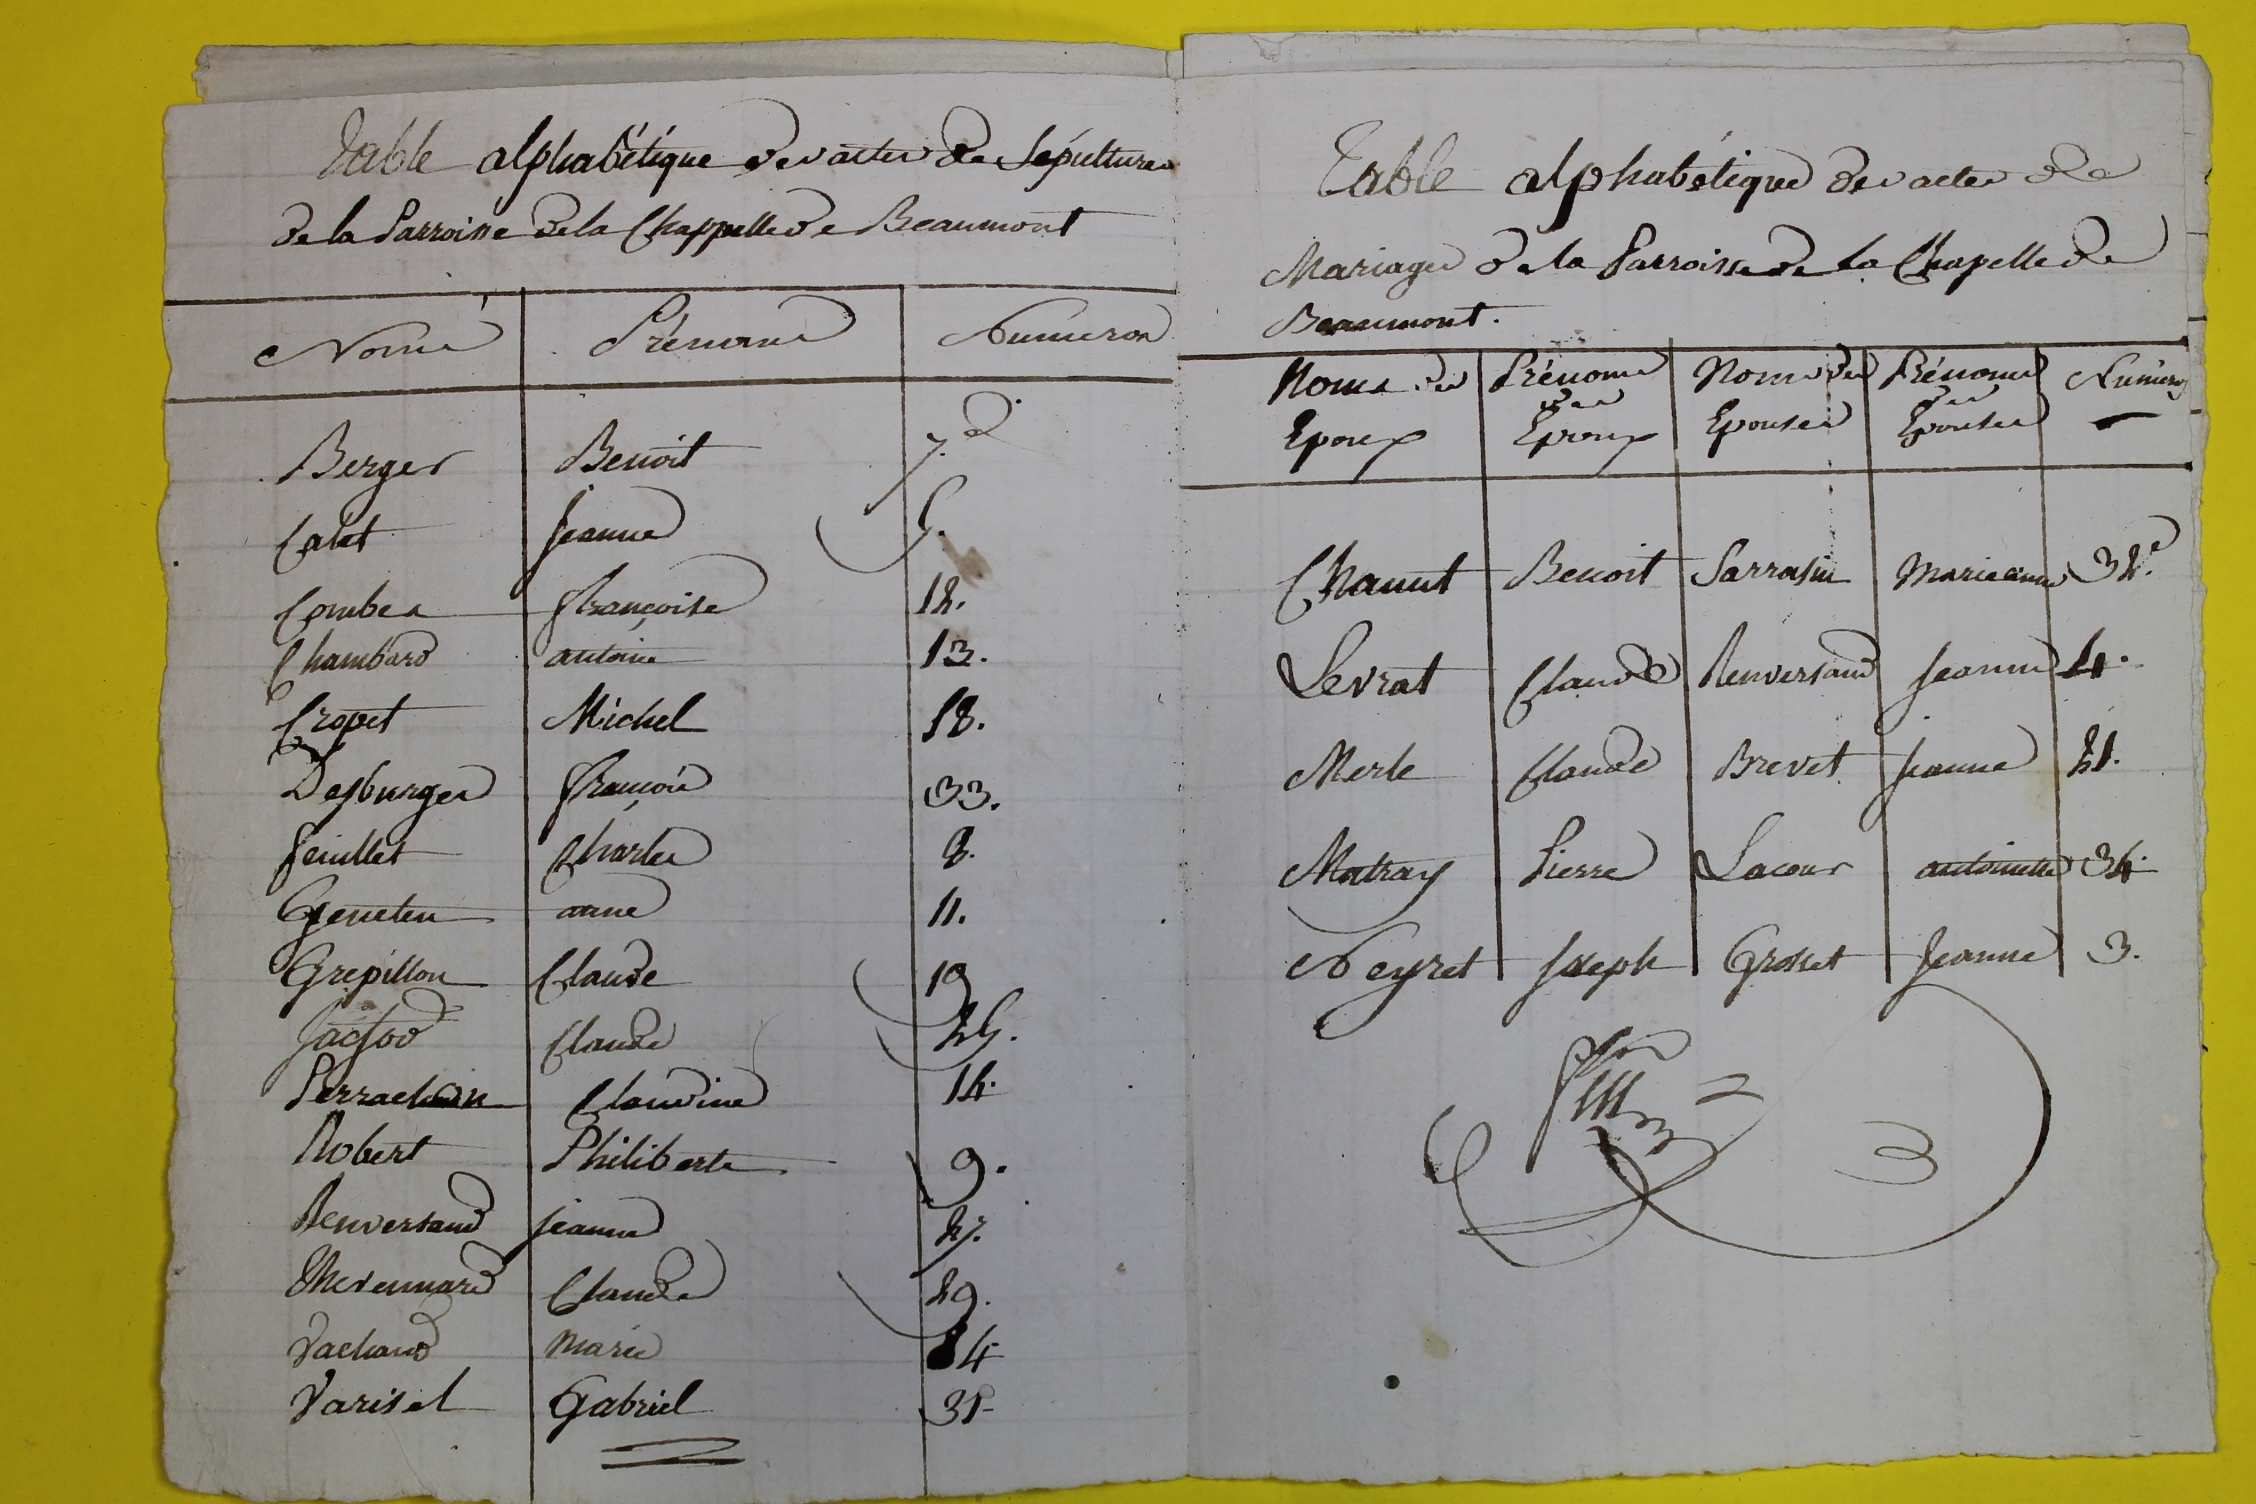 Table alphabétique des actes de Sépultures
de la Parroisse de la Chappelle de Beaumont
Noms Prénoms Numeros
Berger Benoit 7.
Calet Jeanne 5.
Combes Françoise 12.
Chambard antoine 13.
Cropet Michel 18.
Desburges François 33.
feuillet Charles 8.
Geneten anne 11.
Grepillon Claude 19
Jacsod Claude 25.
Perrachon Claudine 14.
Robert Philiberte 9.
Renversaud jeanne 27.
Thevennard Claude 29.
Vachaud Marie 24
Varisel Gabriel 31
Table alphabétique des actes de
Mariages de la Parroisse de la Chapelle de
Beaumont.
Noms des Epoux Prénoms des Epoux Noms des Epouses Prénoms des Epouses Numeros
Chanut Benoit Sarrasin Marieanne 32.e
Levrat Claude Renversaud Jeanne 4.
Merle Claude Brevet jeanne 21.
Matray Pierre Lacour antoinette 34.
Neyret Joseph Grosset Jeanne 3.
3